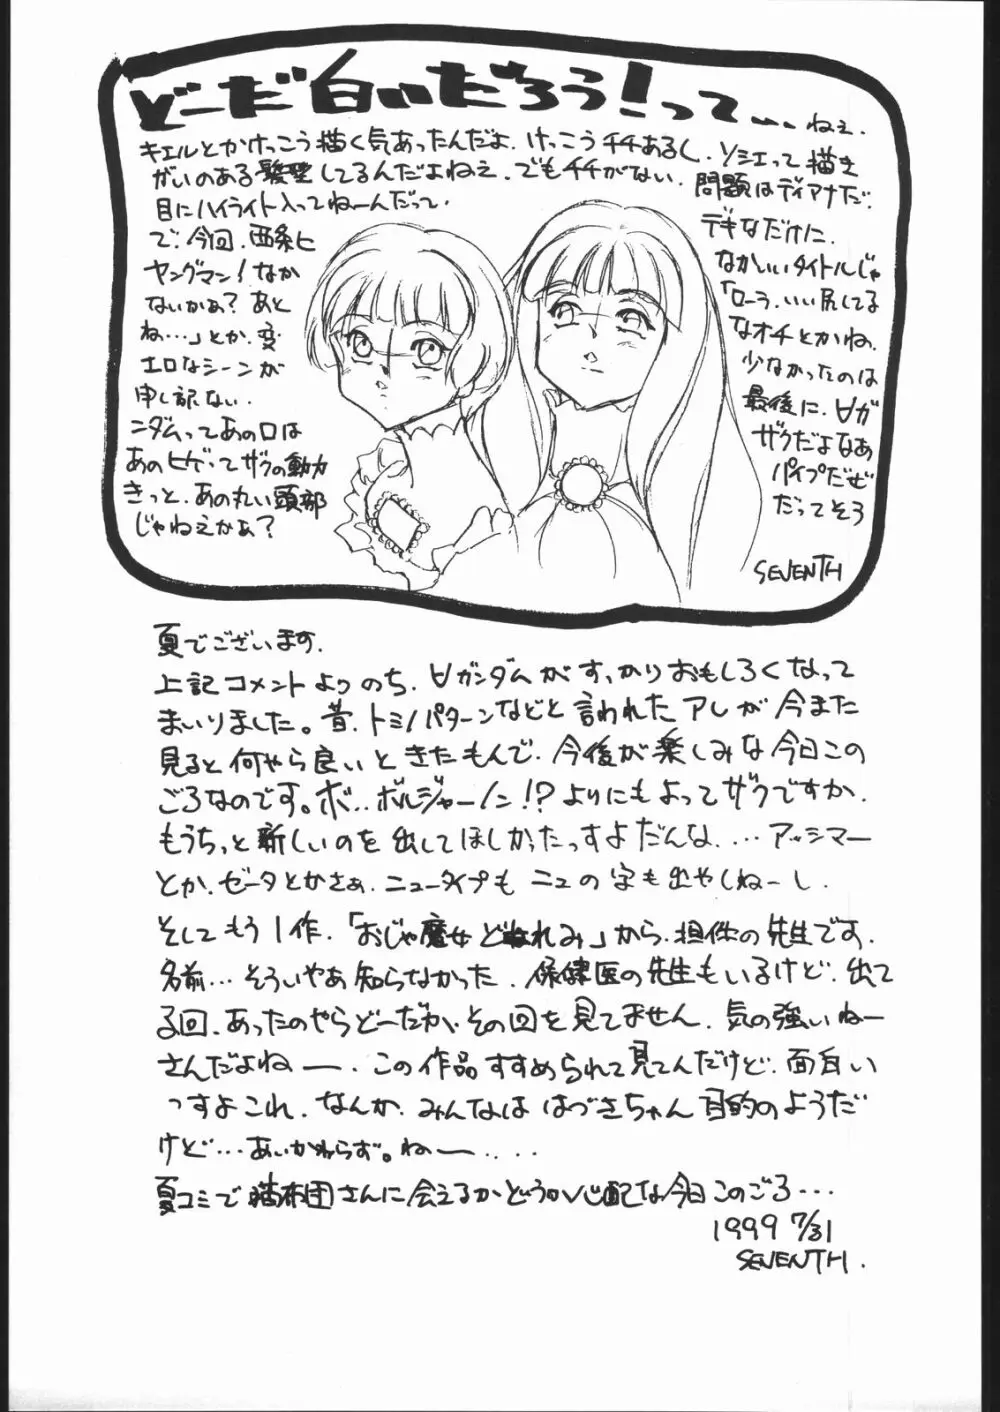 どーだ白いだろう!って... ねぇ.
キエルとかけっこう描く気あったんだよ.けっこうチチあるし.ソシエって描き
がいのある髪型してるんだよねぇ.でもチチがない.問題はディアナだ.
目にハイライト入ってねーんだって.
で.今回.西条ヒ デキなだけに.
ヤングマン!なか なかいいタイトルじゃ
ないかぁ?あと 「ローラ.いい尻してる
ね…」とか.変 なオチとかね.
エロなシーンが 少なかったのは
申し訳ない. 最後に.∀ガ
ンダムってあの口は ザクだよなあ
あのヒゲってザクの動力 パイプだぜ
きっと.あの丸い頭部 だってそう
じゃねえかぁ?
SEVENTH
夏でございます.
上記コメントよりのち.∀ガンダムがすっかりおもしろくなって
まいりました。昔.トミノパターンなどと言われたアレが今また
見ると何やら良いときたもんで.今後が楽しみな今日この
ごろなのです。ボ..ボルジャーノン!?よりにもよってザクですか.
もうちっと新しいのを出してほしかったっすよだんな....アッシマー
とか.ゼータとかさぁ.ニュータイプもニュの字も出やしねーし.
そしてもう1作.「おじゃ魔女どれみ」から.担任の先生です.
名前...そういやぁ知らなかった.保健医の先生もいるけど.出て
る回.あったのやらどーだか.その回を見てません.気の強いねー
さんだよねー.この作品すすめられて見てんだけど.面白い
っすよこれ.なんか.みんなははづきちゃん目的のようだ
けど...あいかわらず。ねー....
夏コミで猫布団さんに会えるかどうか心配な今日このごろ...
1999 7/31
SEVENTH.